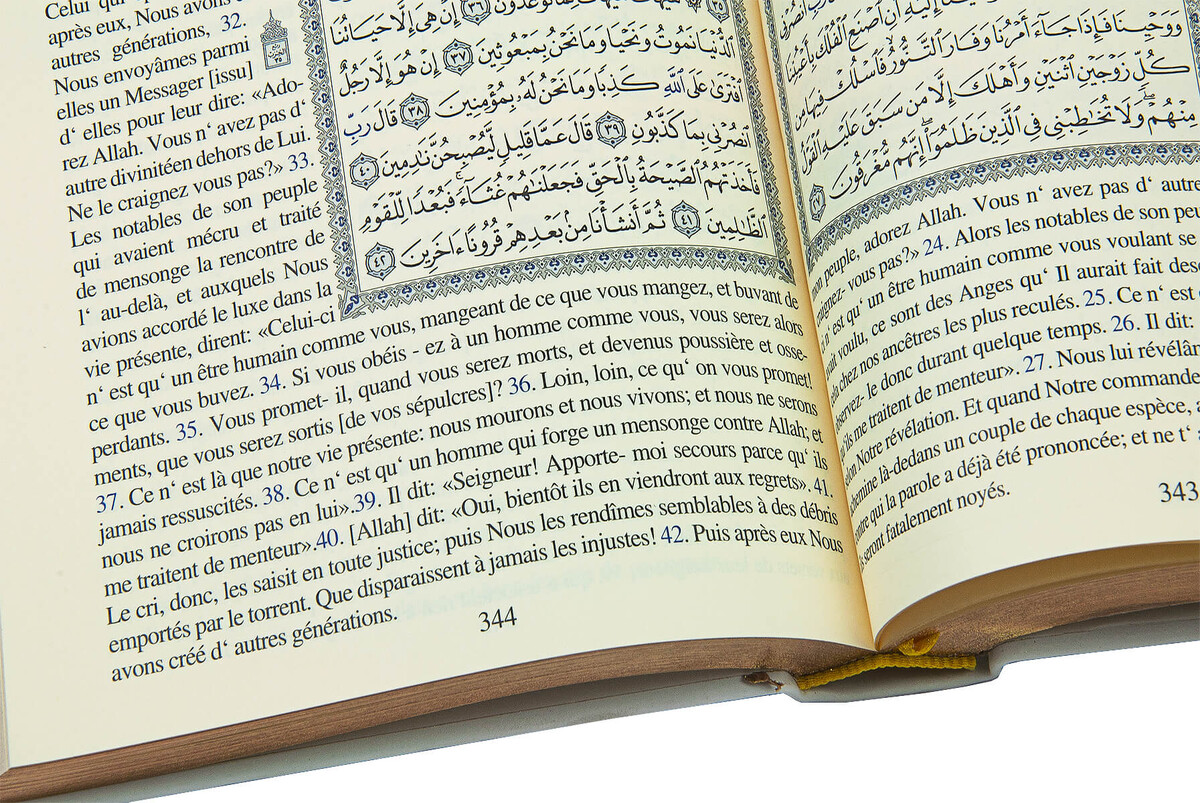 إِلَيْهِ أَنِ ٱصْنَعِ ٱلْفُلْكَ بِأَعْيُنِنَا
وَوَحْيِنَا فَإِذَا جَآءَ أَمْرُنَا وَفَارَ ٱلتَّنُّورُ فَٱسْلُكْ فِيهَا مِن
كُلٍّ زَوْجَيْنِ ٱثْنَيْنِ وَأَهْلَكَ إِلَّا مَن سَبَقَ عَلَيْهِ ٱلْقَوْلُ
مِنْهُمْ وَلَا تُخَٰطِبْنِى فِى ٱلَّذِينَ ظَلَمُوٓا۟ إِنَّهُم مُّغْرَقُونَ ٢٧
peuple, adorez Allah. Vous n‘ avez pas d‘ autre
vous pas?» 24. Alors les notables de son peu
n‘ est qu‘ un être humain comme vous voulant se
voulu, ce sont des Anges qu‘ Il aurait fait desc
chez nos ancêtres les plus reculés. 25. Ce n‘ est
le donc durant quelque temps. 26. Il dit:
qu‘ils me traitent de menteur». 27. Nous lui révélâm
selon Notre révélation. Et quand Notre commande
là-dedans un couple de chaque espèce,
contre qui la parole a déjà été prononcée; et ne t‘
ils seront fatalement noyés.
343
Celui qui
après eux, Nous avons
autres générations, 32.
Nous envoyâmes parmi
elles un Messager [issu]
d‘ elles pour leur dire: «Ado-
rez Allah. Vous n‘ avez pas d‘
autre divinitéen dehors de Lui.
Ne le craignez vous pas?» 33.
Les notables de son peuple
qui avaient mécru et traité
de mensonge la rencontre de
l‘ au-delà, et auxquels Nous
avions accordé le luxe dans la
vie présente, dirent: «Celui-ci
تُوعَدُونَ ٣٦ إِنْ هِىَ إِلَّا حَيَاتُنَا
ٱلدُّنْيَا نَمُوتُ وَنَحْيَا وَمَا نَحْنُ بِمَبْعُوثِينَ ٣٧ إِنْ هُوَ إِلَّا رَجُلٌ
ٱفْتَرَىٰ عَلَى ٱللَّهِ كَذِبًا وَمَا نَحْنُ لَهُۥ بِمُؤْمِنِينَ ٣٨ قَالَ رَبِّ
ٱنصُرْنِى بِمَا كَذَّبُونِ ٣٩ قَالَ عَمَّا قَلِيلٍ لَّيُصْبِحُنَّ نَٰدِمِينَ ٤٠
فَأَخَذَتْهُمُ ٱلصَّيْحَةُ بِٱلْحَقِّ فَجَعَلْنَٰهُمْ غُثَآءً فَبُعْدًا لِّلْقَوْمِ
ٱلظَّٰلِمِينَ ٤١ ثُمَّ أَنشَأْنَا مِنۢ بَعْدِهِمْ قُرُونًا ءَاخَرِينَ ٤٢
n‘ est qu‘ un être humain comme vous, mangeant de ce que vous mangez, et buvant de
ce que vous buvez. 34. Si vous obéis - ez à un homme comme vous, vous serez alors
perdants. 35. Vous promet- il, quand vous serez morts, et devenus poussière et osse-
ments, que vous serez sortis [de vos sépulcres]? 36. Loin, loin, ce qu‘ on vous promet!
37. Ce n‘ est là que notre vie présente: nous mourons et nous vivons; et nous ne serons
jamais ressuscités. 38. Ce n‘ est qu‘ un homme qui forge un mensonge contre Allah; et
nous ne croirons pas en lui».39. Il dit: «Seigneur! Apporte- moi secours parce qu‘ ils
me traitent de menteur».40. [Allah] dit: «Oui, bientôt ils en viendront aux regrets». 41.
Le cri, donc, les saisit en toute justice; puis Nous les rendîmes semblables à des débris
emportés par le torrent. Que disparaissent à jamais les injustes! 42. Puis après eux Nous
avons créé d‘ autres générations.
344